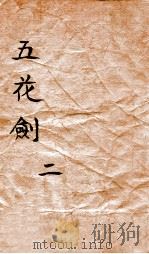 五花劍
二
mtoou.info